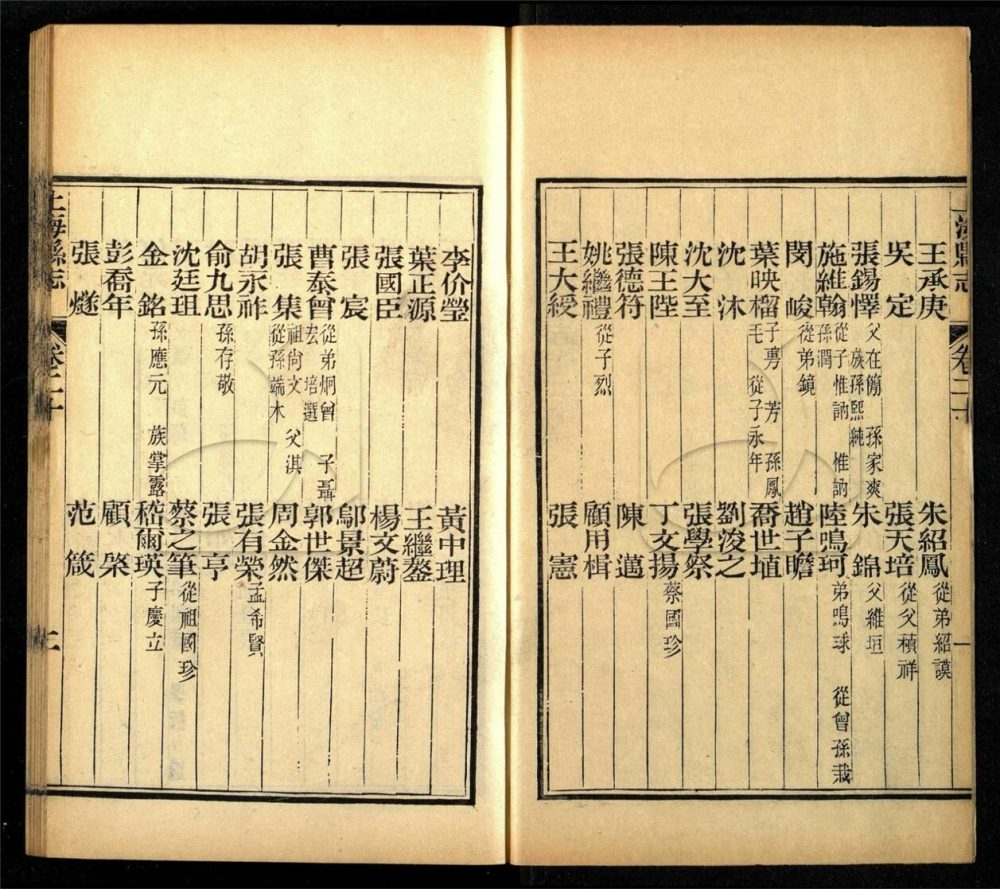 海縣志 卷二十 一
王承庚 朱紹鳳 從弟紹謨
吳定 張天培 從父積祥
張錫懌 父在簡 孫家爽 族孫熙純 朱錦 父維垣
施維翰 從子惟訥 惟訥孫潤 陸鳴珂 弟鳴球 從曾孫栽
閔峻 從弟鏡 趙子瞻
葉映榴 子旉 芳 孫鳳毛 從子永年 喬世埴
沈沐 劉浚之
沈大至 張學祭
陳王陛 丁文揚 蔡國珍
張德符 陳邁
姚繼禮 從子烈 顧用楫
王大綬 張憲
李价瑩 黃中理
葉正源 王繼鏊
張國臣 楊文蔚
張宸 鄔景超
曹泰曾 從弟炯曾 子聶去 培選 郭世傑
張集 祖尙文 父淇 從孫端木 周金然
胡永祚 張有榮 孟希賢
俞九思 孫存敬 張亨
沈廷珇 蔡之筆 從祖國珍
金銘 孫應元 族掌露 嵇爾瑛 子慶立
彭喬年 顧棨
張燧 范箴
上海縣志 卷二十 二